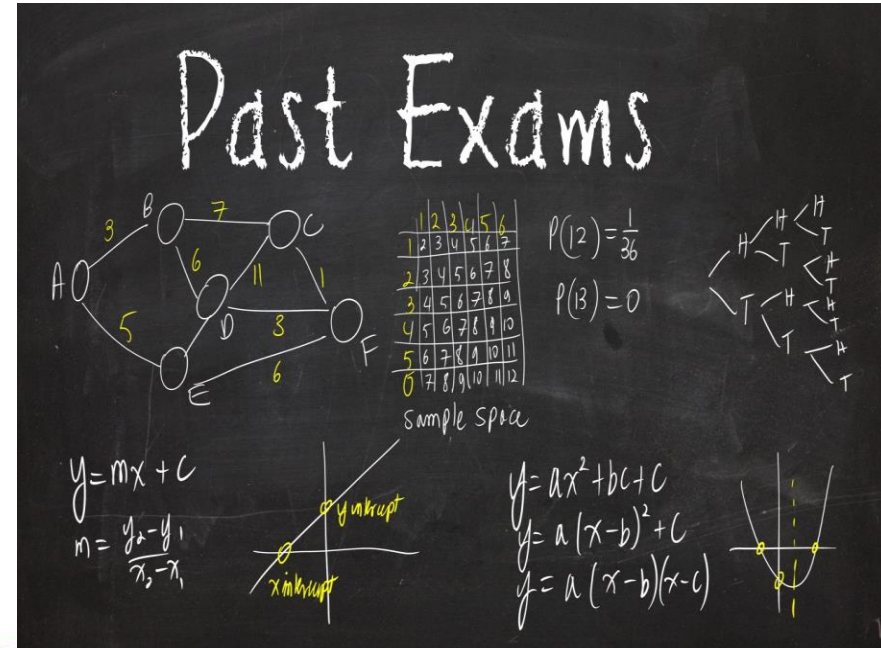 Past Exams
B 7 C
3
6 11 1
A
5 D 3
F
E 6
1 2 3 4 5 6
1 2 3 4 5 6 7
2 3 4 5 6 7 8
3 4 5 6 7 8 9
4 5 6 7 8 9 10
5 6 7 8 9 10 11
6 7 8 9 10 11 12
sample space
P(12) = 1/36
P(13) = 0
H H H
T
T H
T
T H H
T
T H
T
y = mx + c
m = y₂-y₁/x₂-x₁
y intercept
x intercept
y = ax² + bc + c
y = a(x-b)² + c
y = a(x-b)(x-c)